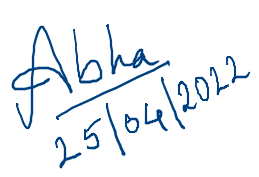 Abha
25/04/2022